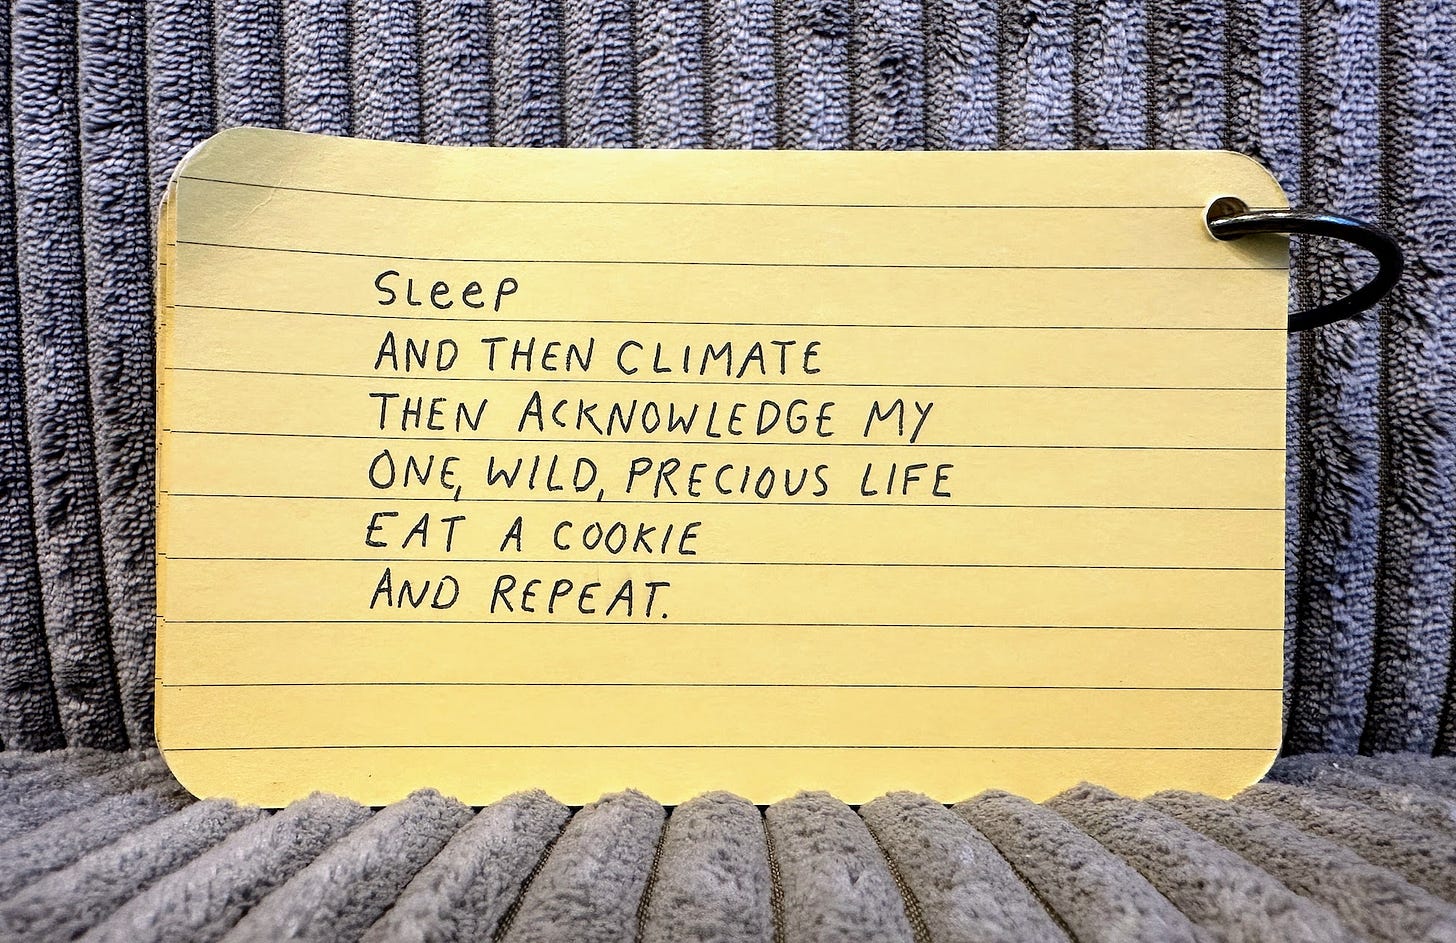 SLeeP
AND THEN CLIMATE
THEN ACKNOWLEDGE MY
ONE, WILD, PRECIOUS LIFE
EAT A COOKIE
AND REPEAT.